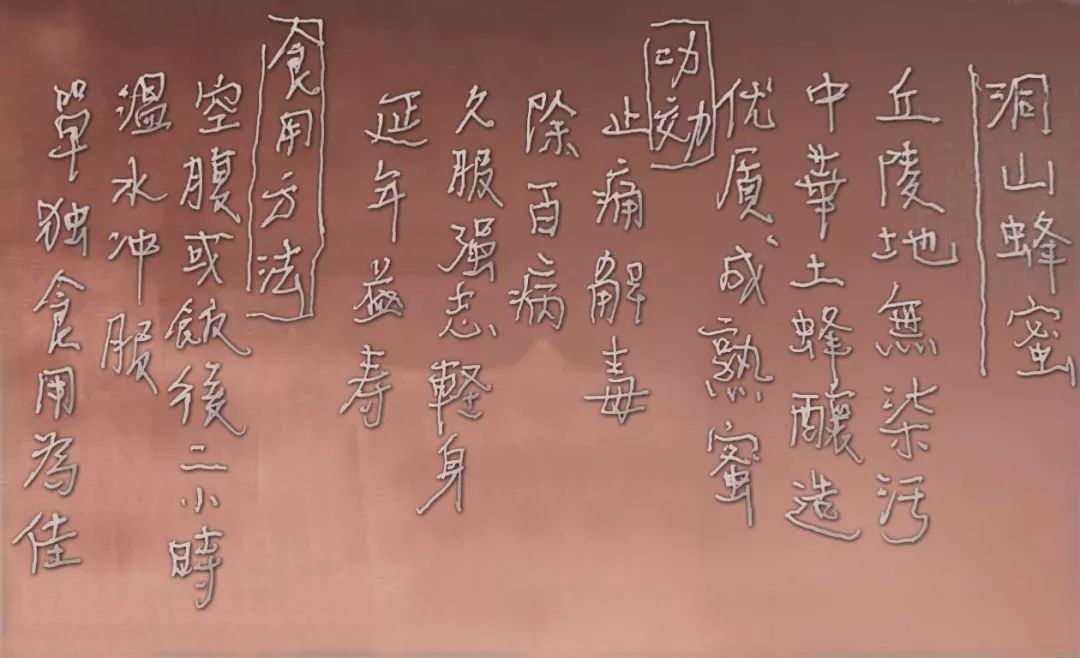 洞山蜂蜜
丘陵地無柒污
中華土蜂釀造
优质成熟蜜
功効
止痛解毒
除百病
久服强志軽身
延年益寿
食用方法
空腹或飯後二小時
溫水冲服
單独食用為佳